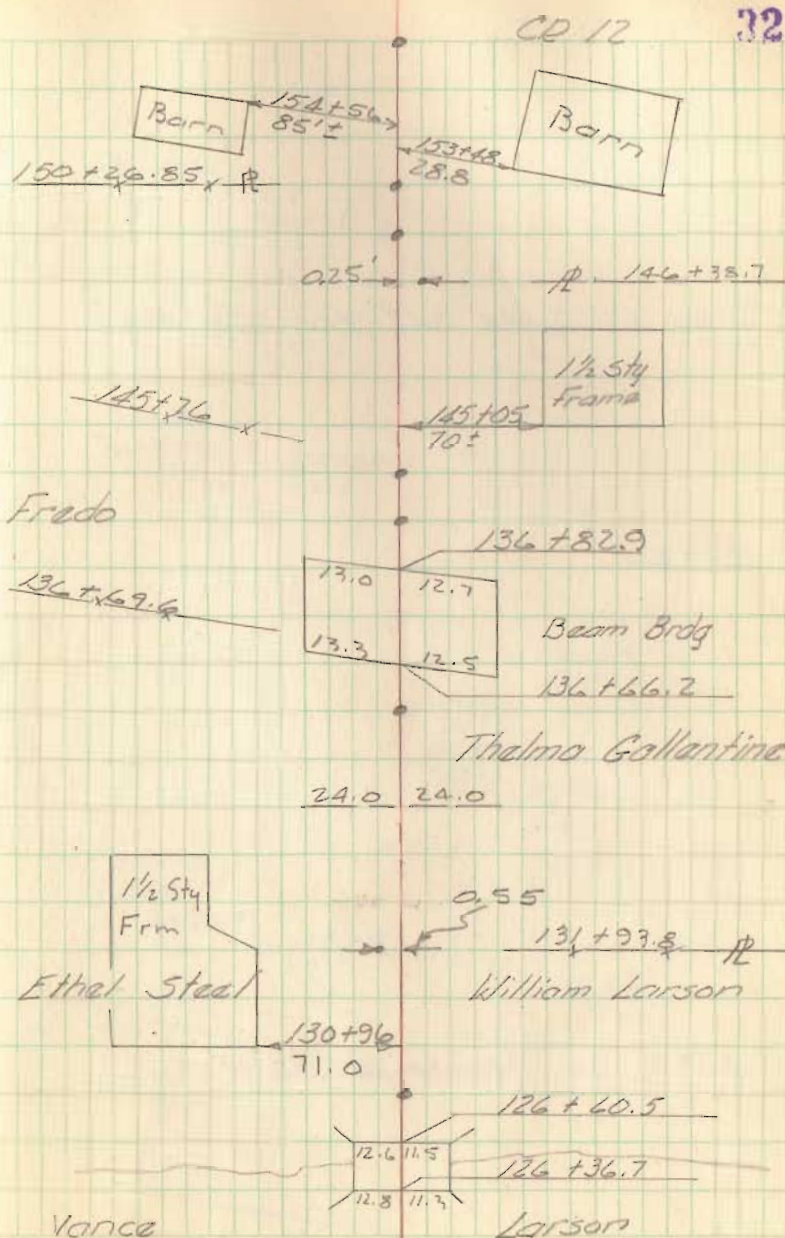 CR 12
32
Barn
154+56
85'±
Barn
153+48
28.8
150+26.85 PL
0.25'
PL 146+38.7
1½ Sty
Frame
145+76
145+05
70±
Fredo
136+82.9
13.0
12.7
136+69.6
Beam Brdg
13.3
12.5
136+66.2
Thelma Gallentine
24.0
24.0
1½ Sty
Frm
0.55
131+93.8 PL
Ethel Steel
William Larson
130+96
71.0
126+60.5
12.6
11.5
126+36.7
12.8
11.3
Vance
Larson